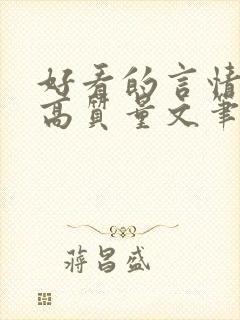 好看的言情
高质量文笔
蒋昌盛